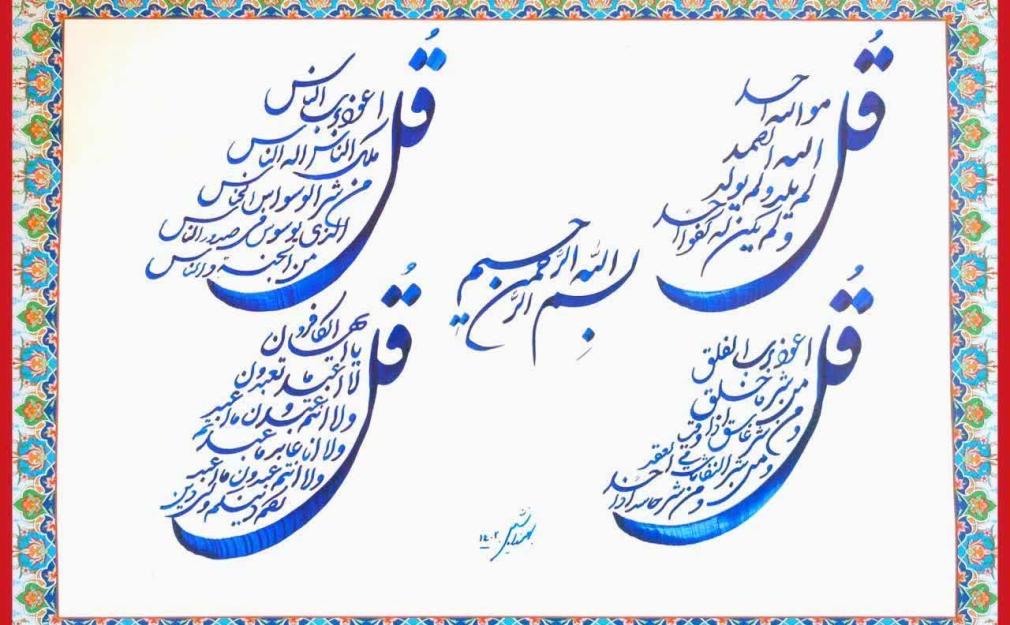 قُل
هو الله احد
الله الصمد
لم یلد و لم یولد
و لم یکن له کفوا احد
قُل
اعوذ برب الناس
ملک الناس اله الناس
من شر الوسواس الخناس
الذی یوسوس فی صدور الناس
من الجنة و الناس
بسم الله الرَّحمن
الرَّحیم
قُل
اعوذ برب الفلق
من شر ما خلق
و من شر غاسق اذا وقب
و من شر النفاثات فی العقد
و من شر حاسد اذا
قُل
یا ایها الکافرون
لا اعبد ما تعبدون
ولا انتم عبدون ما اعبد
ولا انا عابد ما عبدتم
ولا انتم عبدون ما اعبد
لکم دینکم ولی دین
۱۴۰۲